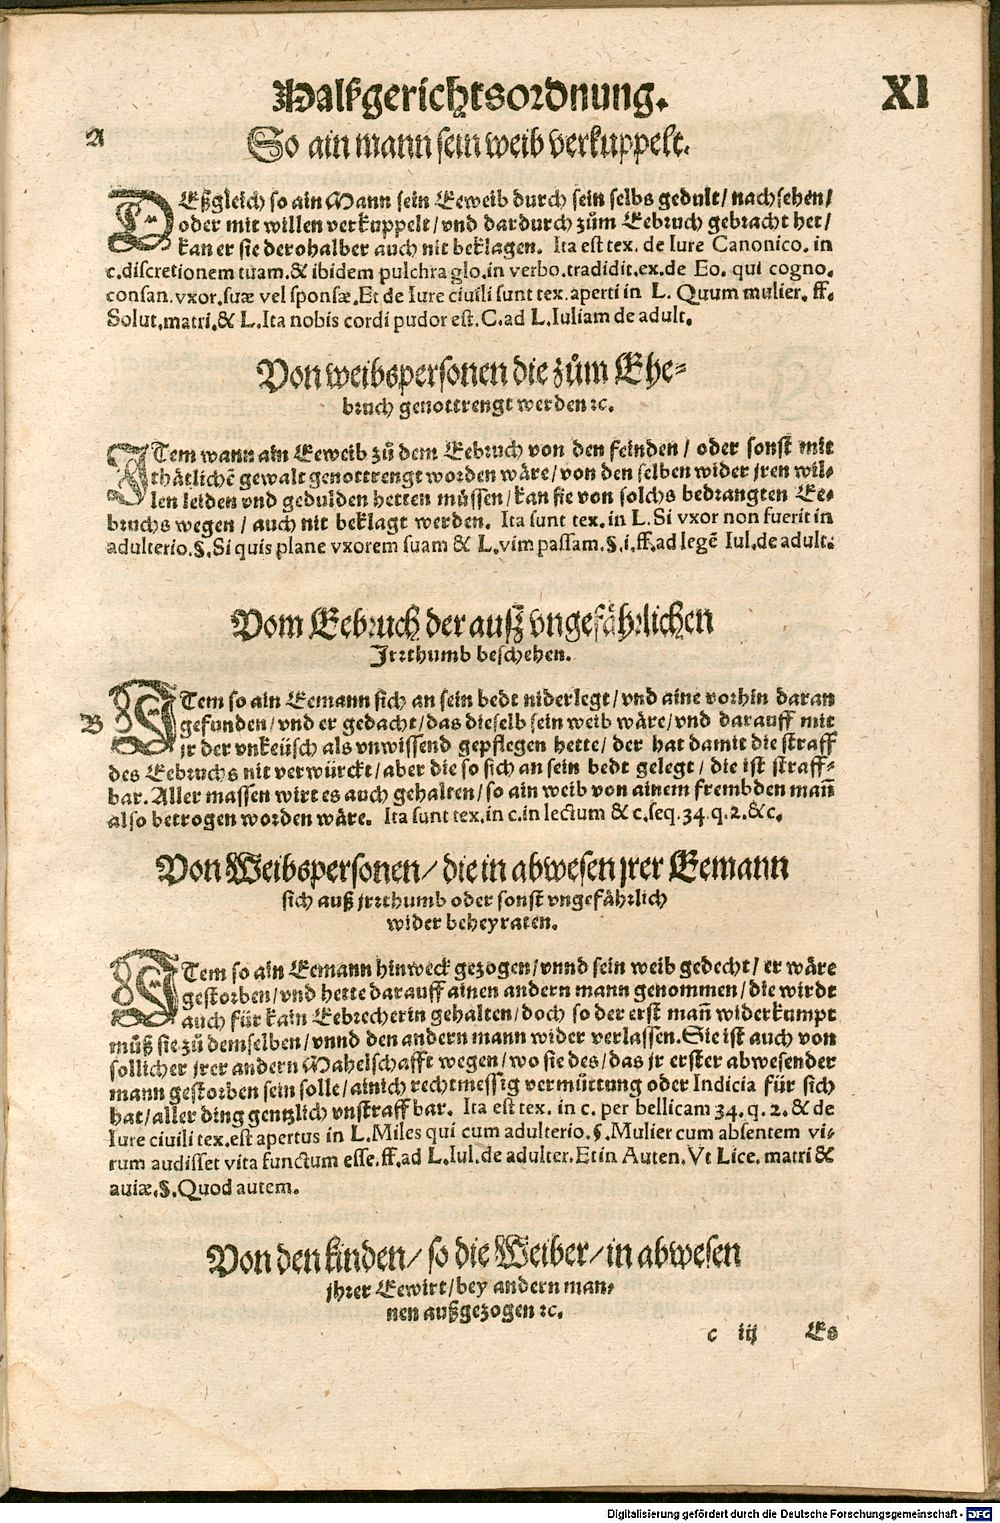 Halßgerichtsordnung. XI
A So ain mann sein weib verkuppelt.
DEßgleich so ain Mann sein Eeweib durch sein selbs gedult/ nachsehen/
oder mit willen verkuppelt/ vnd dardurch zům Eebruch gebracht het/
kan er sie derohalber auch nit beklagen. Ita est tex. de Iure Canonico. in
c.discretionem tuam.& ibidem pulchra glo.in verbo.tradidit.ex.de Eo. qui cogno.
consan.vxor.suæ vel sponsæ.Et de Iure ciuili sunt tex.aperti in L. Quum mulier. ff.
Solut.matri.& L.Ita nobis cordi pudor est.C.ad L.Iuliam de adult.
Von weibspersonen die zům Ehe-
bruch genottrengt werden ꝛc.
ITem wann ain Eeweib zů dem Eebruch von den feinden/ oder sonst mit
thätlichē gewalt genottrengt worden wäre/ von den selben wider jren wil-
len leiden vnd gedulden hetten müssen/ kan sie von solchs bedrangten Ee-
bruchs wegen/ auch nit beklagt werden. Ita sunt tex. in L.Si vxor non fuerit in
adulterio.§.Si quis plane vxorem suam & L.vim passam.§.i.ff.ad legē Iul.de adult.
Vom Eebruch der auß vngefährlichen
Jrrthumb beschehen.
B ITem so ain Eemann sich an sein bedt niderlegt/ vnd aine vorhin daran
gefunden/ vnd er gedacht/ das dieselb sein weib wäre/ vnd darauff mit
jr der vnkeüsch als vnwissend gepflegen hette/ der hat damit die straff
des Eebruchs nit verwürckt/ aber die so sich an sein bedt gelegt/ die ist straff-
bar. Aller massen wirt es auch gehalten/ so ain weib von ainem frembden mañ
also betrogen worden wäre. Ita sunt tex.in c.in lectum & c.seq.34.q.2.&c.
Von Weibspersonen/ die in abwesen jrer Eemann
sich auß jrrthumb oder sonst vngefährlich
wider beheyraten.
ITem so ain Eemann hinweck gezogen/ vnnd sein weib gedecht/ er wäre
gestorben/ vnd hette darauff ainen andern mann genommen/ die wirdt
auch für kain Eebrecherin gehalten/ doch so der erst mañ widerkumpt
můß sie zů demselben/ vnnd den andern mann wider verlassen.Sie ist auch von
sollicher jrer andern Mahelschafft wegen/ wo sie des/ das jr erster abwesender
mann gestorben sein solle/ ainich rechtmessig vermůttung oder Indicia für sich
hat/ aller ding gentzlich vnstraffbar. Ita est tex. in c. per bellicam 34. q. 2. & de
Iure ciuili tex.est apertus in L.Miles qui cum adulterio.§.Mulier cum absentem vi-
rum audisset vita functum esse.ff.ad L.Iul.de adulter.Et in Auten.Vt Lice. matri &
auiæ.§.Quod autem.
Von den kinden/ so die Weiber/ in abwesen
jhrer Eewirt/ bey andern man-
nen außgezogen ꝛc.
c iij Es
Digitalisierung gefördert durch die Deutsche Forschungsgemeinschaft - DFG